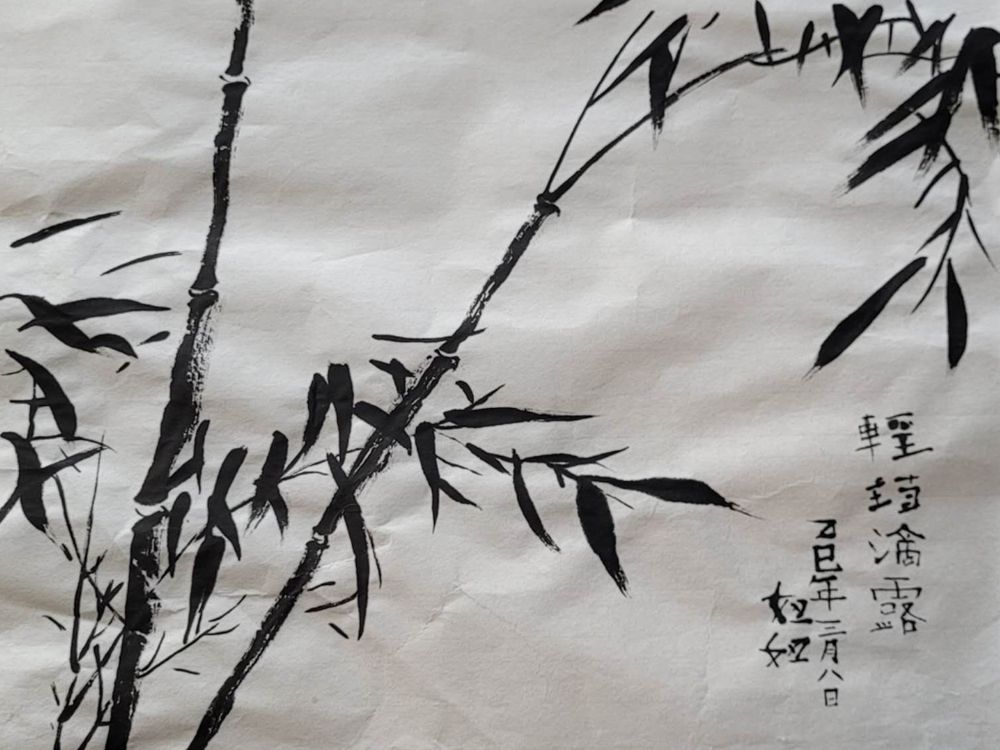 輕滴露
乙巳年三月八日
妞妞